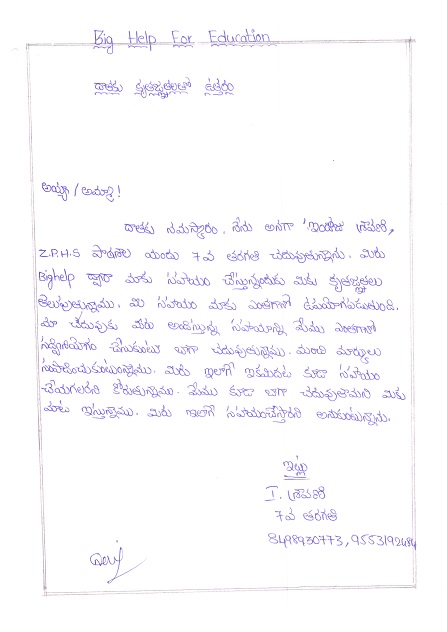 Big Help For Education
దాతకు కృతజ్ఞతలతో ఉత్తరం
అయ్యా / అమ్మా !
దాతకు నమస్కారం. నేను అనగా ఇండ్ల శ్రావణి,
Z.P.H.S పాఠశాల యందు 7వ తరగతి చదువుతున్నాను. మీరు
Bighelp ద్వారా మాకు సహాయం చేస్తున్నందుకు మీకు కృతజ్ఞతలు
తెలుపుతున్నాము. మీ సహాయం మాకు ఎంతగానో ఉపయోగపడుతుంది.
మా చదువుకు మీరు అందిస్తున్న సహాయాన్ని మేము ఎంతగానో
సద్వినియోగం చేసుకుంటూ బాగా చదువుతున్నాము. మంచి మార్కులు
సంపాదించుకుంటున్నాము. మీరు ఇలాగే ఇకమీదట కూడా సహాయం
చేయగలరని కోరుతున్నాము. మేము కూడా బాగా చదువుతామని మీకు
మాట ఇస్తున్నాము. మీరు ఇలాగే సహాయంచేస్తారని అనుకుంటున్నాను.
ఇట్లు
I. శ్రావణి
7వ తరగతి
8498930773, 9553192484